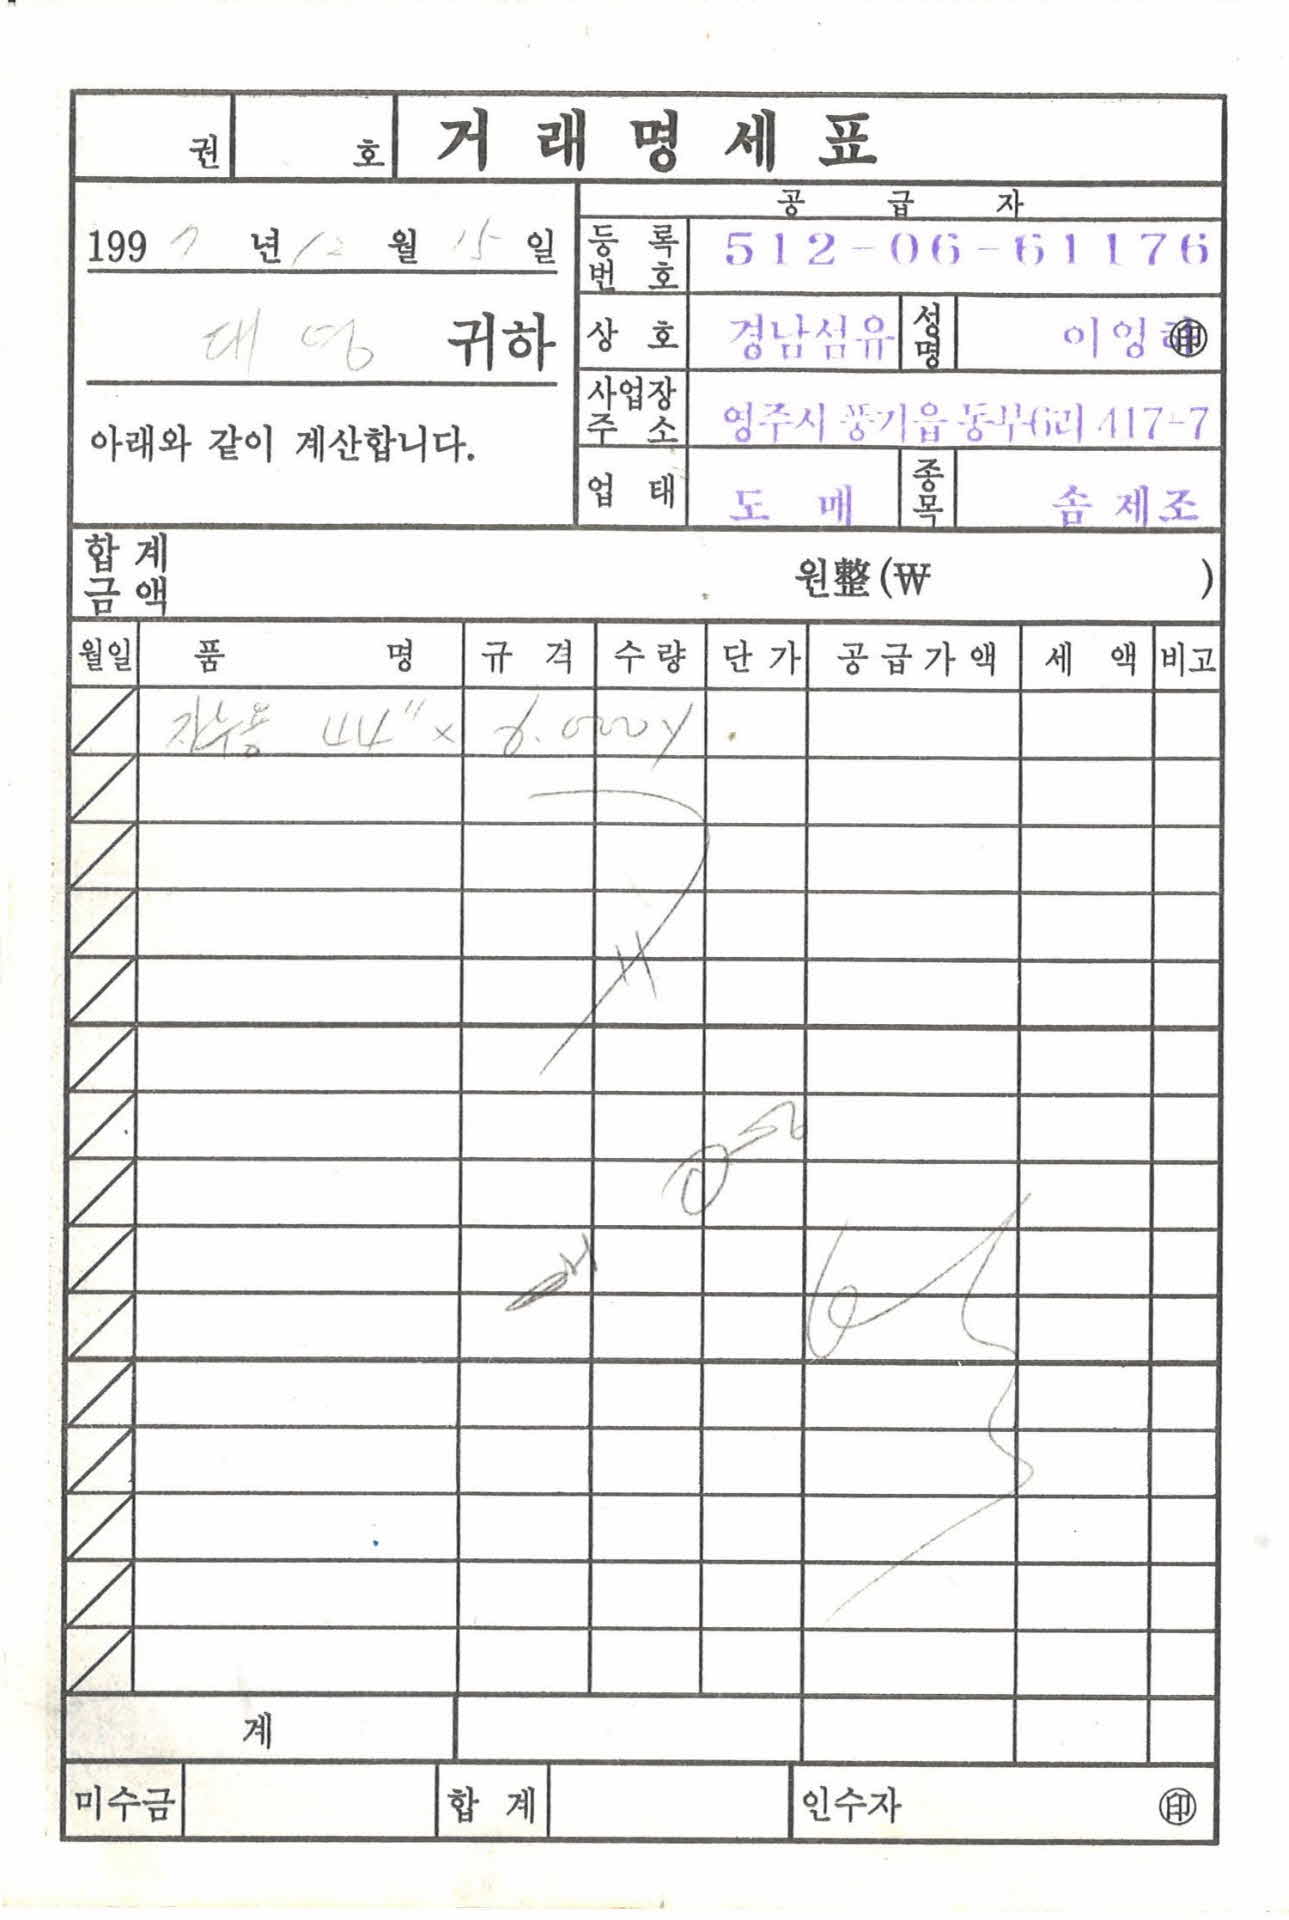 권 호 거래명세표
공 급 자
1997년 12월 15일
등록번호 512-06-61176
대영 귀하
상호 경남섬유 성명 이영 ㊞
사업장주소 영주시 풍기읍 동부6리 417-7
아래와 같이 계산합니다.
업태 도매 종목 솜제조
합계금액 원整(₩ )
월일 품명 규격 수량 단가 공급가액 세액 비고
자수용 44"× 6.000Y
계
미수금 합계 인수자 ㊞